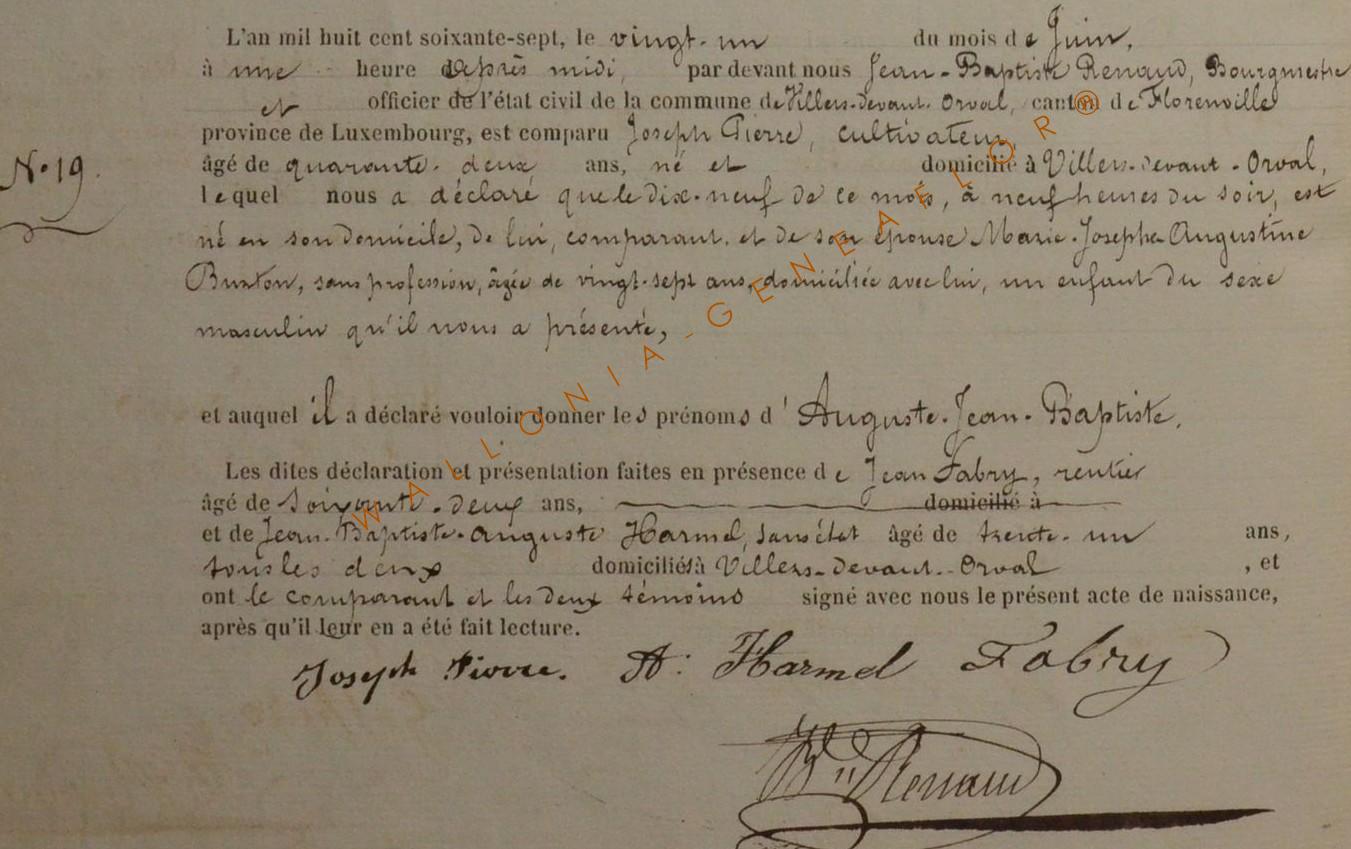 L'an mil huit cent soixante-sept, le vingt-un du mois de Juin,
à une heure après midi, par devant nous Jean-Baptiste Renaud, Bourgmestre
et officier de l'état civil de la commune de Villers-devant-Orval, canton de Florenville
province de Luxembourg, est comparu Joseph Pierre, cultivateur
N° 19.
âgé de quarante-deux ans, né et domicilié à Villers-devant-Orval,
lequel nous a déclaré que le dix-neuf de ce mois, à neuf heures du soir, est
né en son domicile, de lui, comparant, et de son épouse Marie-Josephe-Augustine
Burton, sans profession, âgée de vingt-sept ans, domiciliée avec lui, un enfant du sexe
masculin qu'il nous a présenté,
et auquel il a déclaré vouloir donner les prénoms d'Auguste-Jean-Baptiste.
Les dites déclaration et présentation faites en présence de Jean Fabry, rentier
âgé de soixante-deux ans, domicilié à
et de Jean-Baptiste-Auguste Harmel, sans état âgé de trente-un ans,
tous les deux domiciliés à Villers-devant-Orval, et
ont le comparant et les deux témoins signé avec nous le présent acte de naissance,
après qu'il leur en a été fait lecture.
Joseph Pierre. A. Harmel Fabry
Renaud
WALLONIA-GENEALOR®